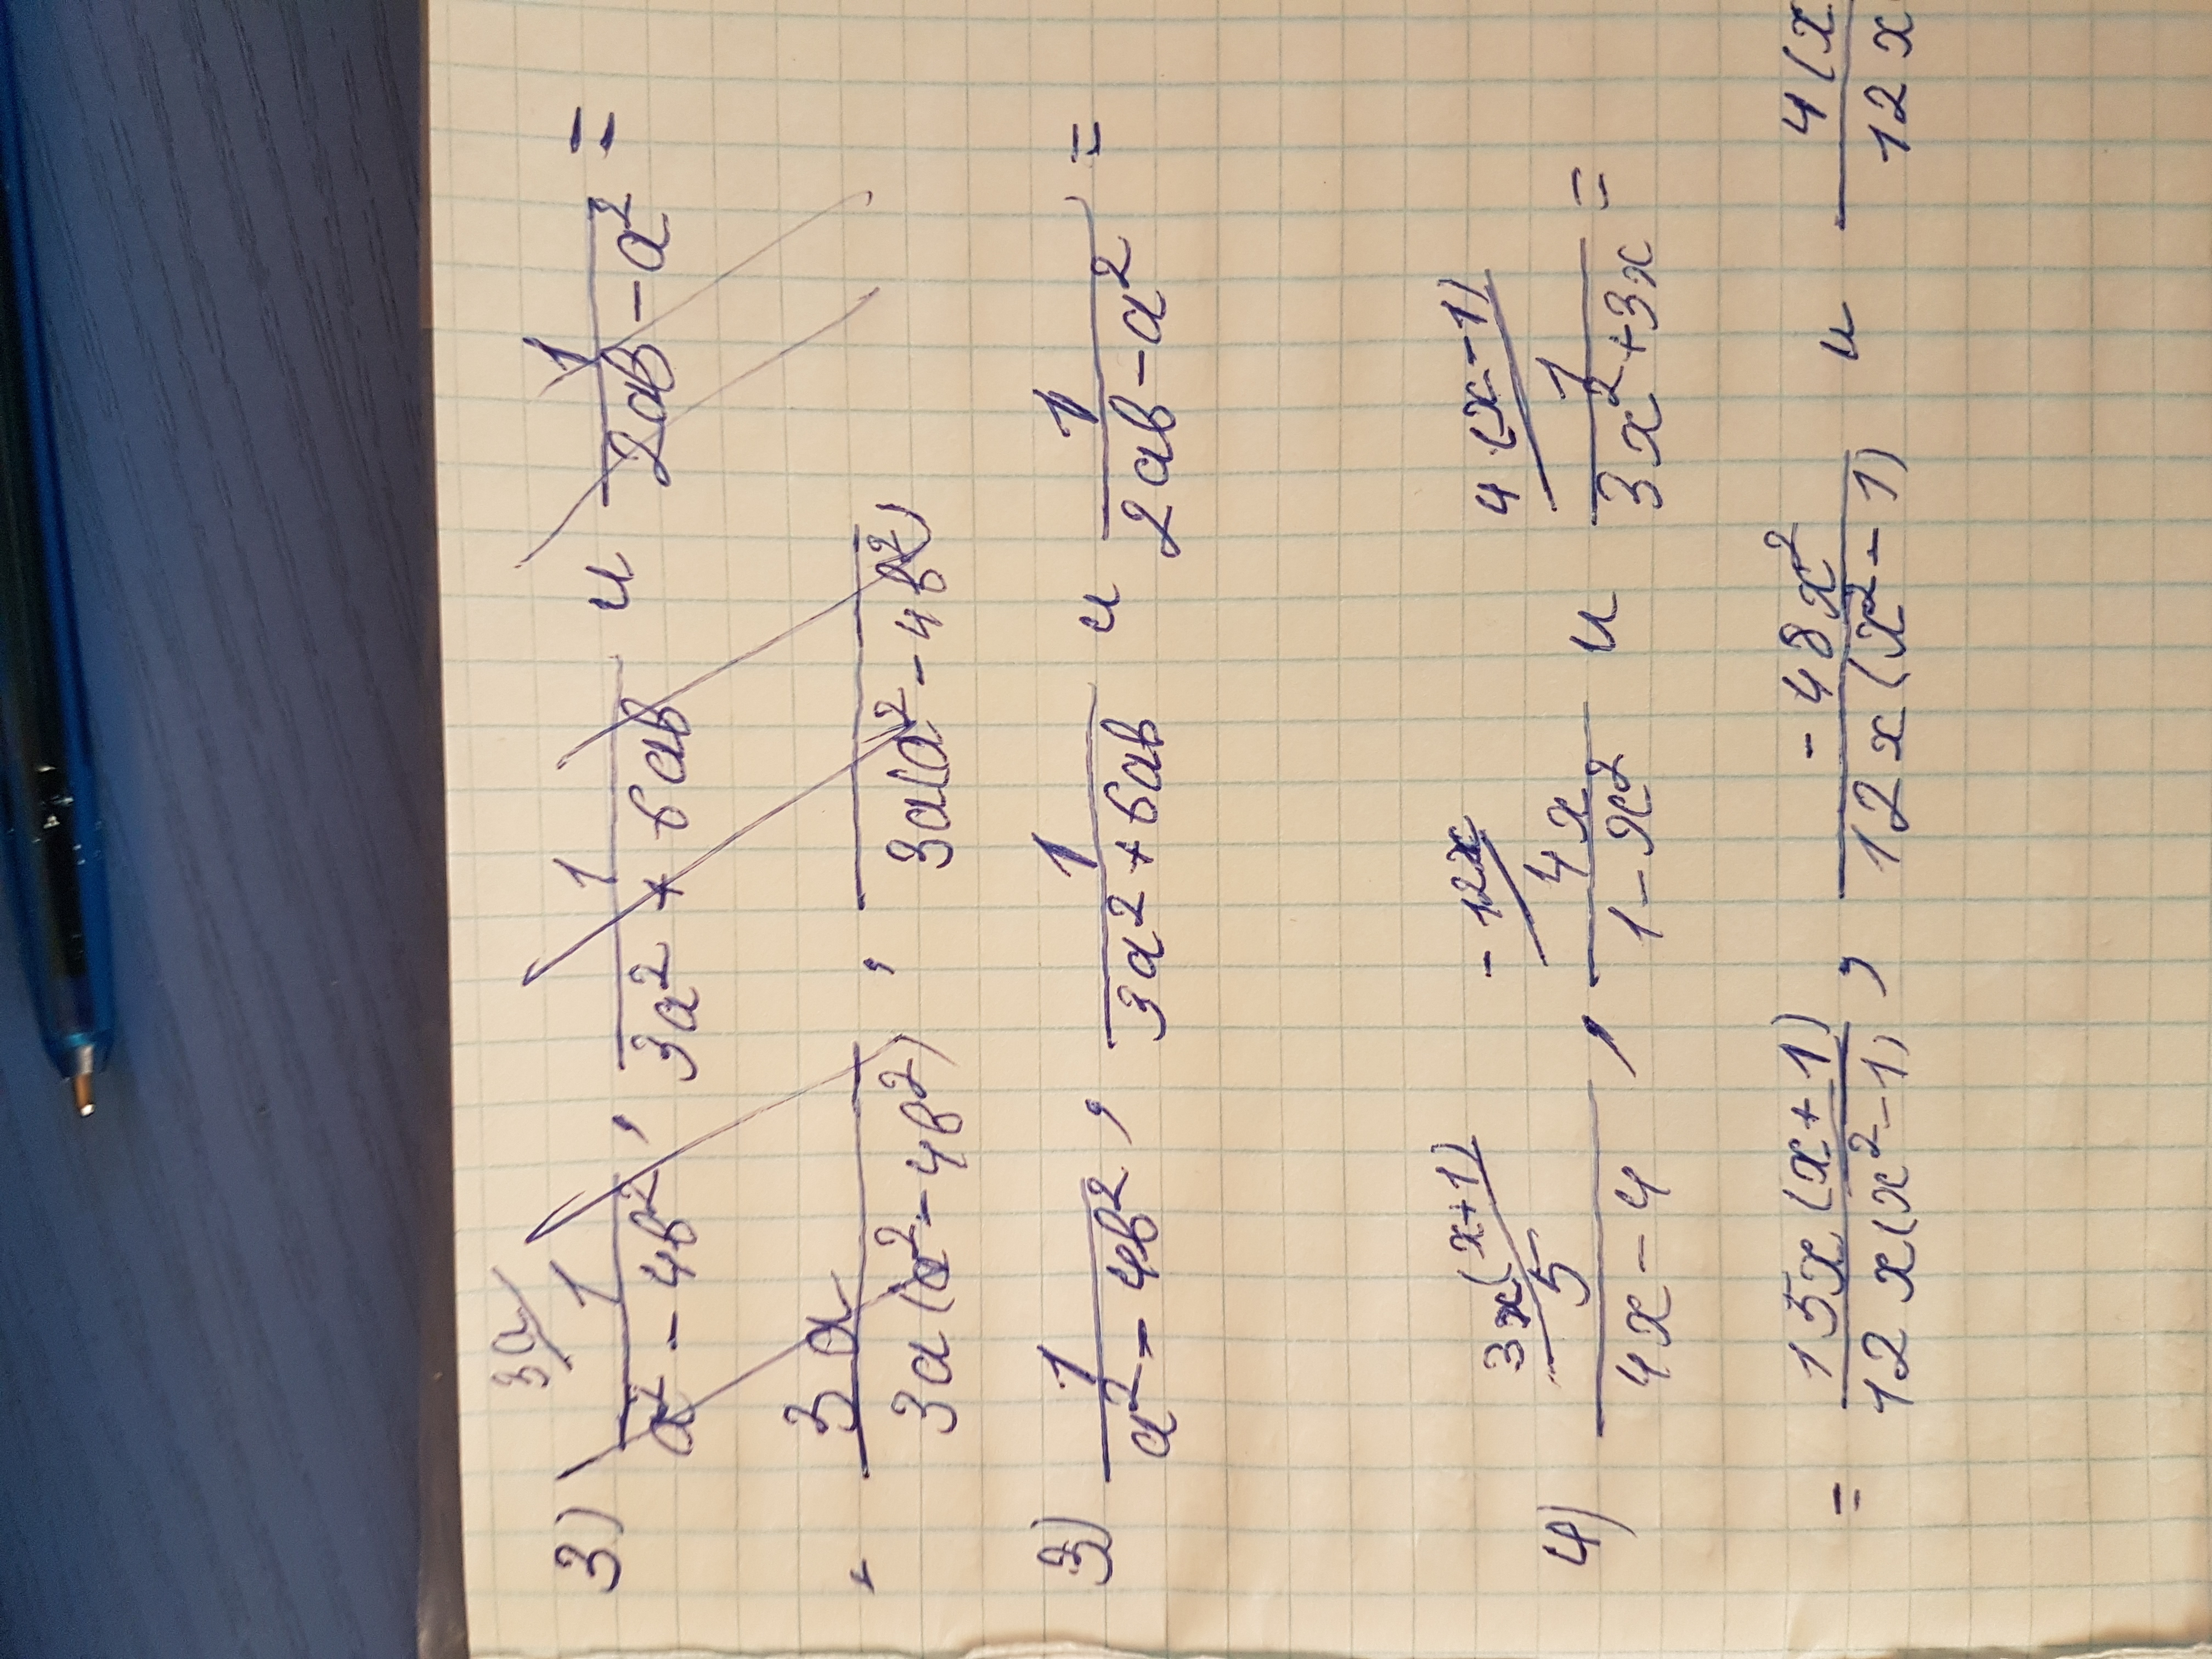 3a
3) 1/(a² - 4b²), 1/(3a² + 6ab) и 1/(2ab - a²) =
3a/(3a(a² - 4b²)), /(3a(a² - 4b²))
3) 1/(a² - 4b²), 1/(3a² + 6ab) и 1/(2ab - a²) =
3x(x+1) -12x 4(x-1)
4) 5/(4x - 4), 4x/(1 - x²) и 1/(3x² + 3x) =
= 15x(x+1)/(12x(x² - 1)), -48x²/(12x(x² - 1)) и 4(x/12x